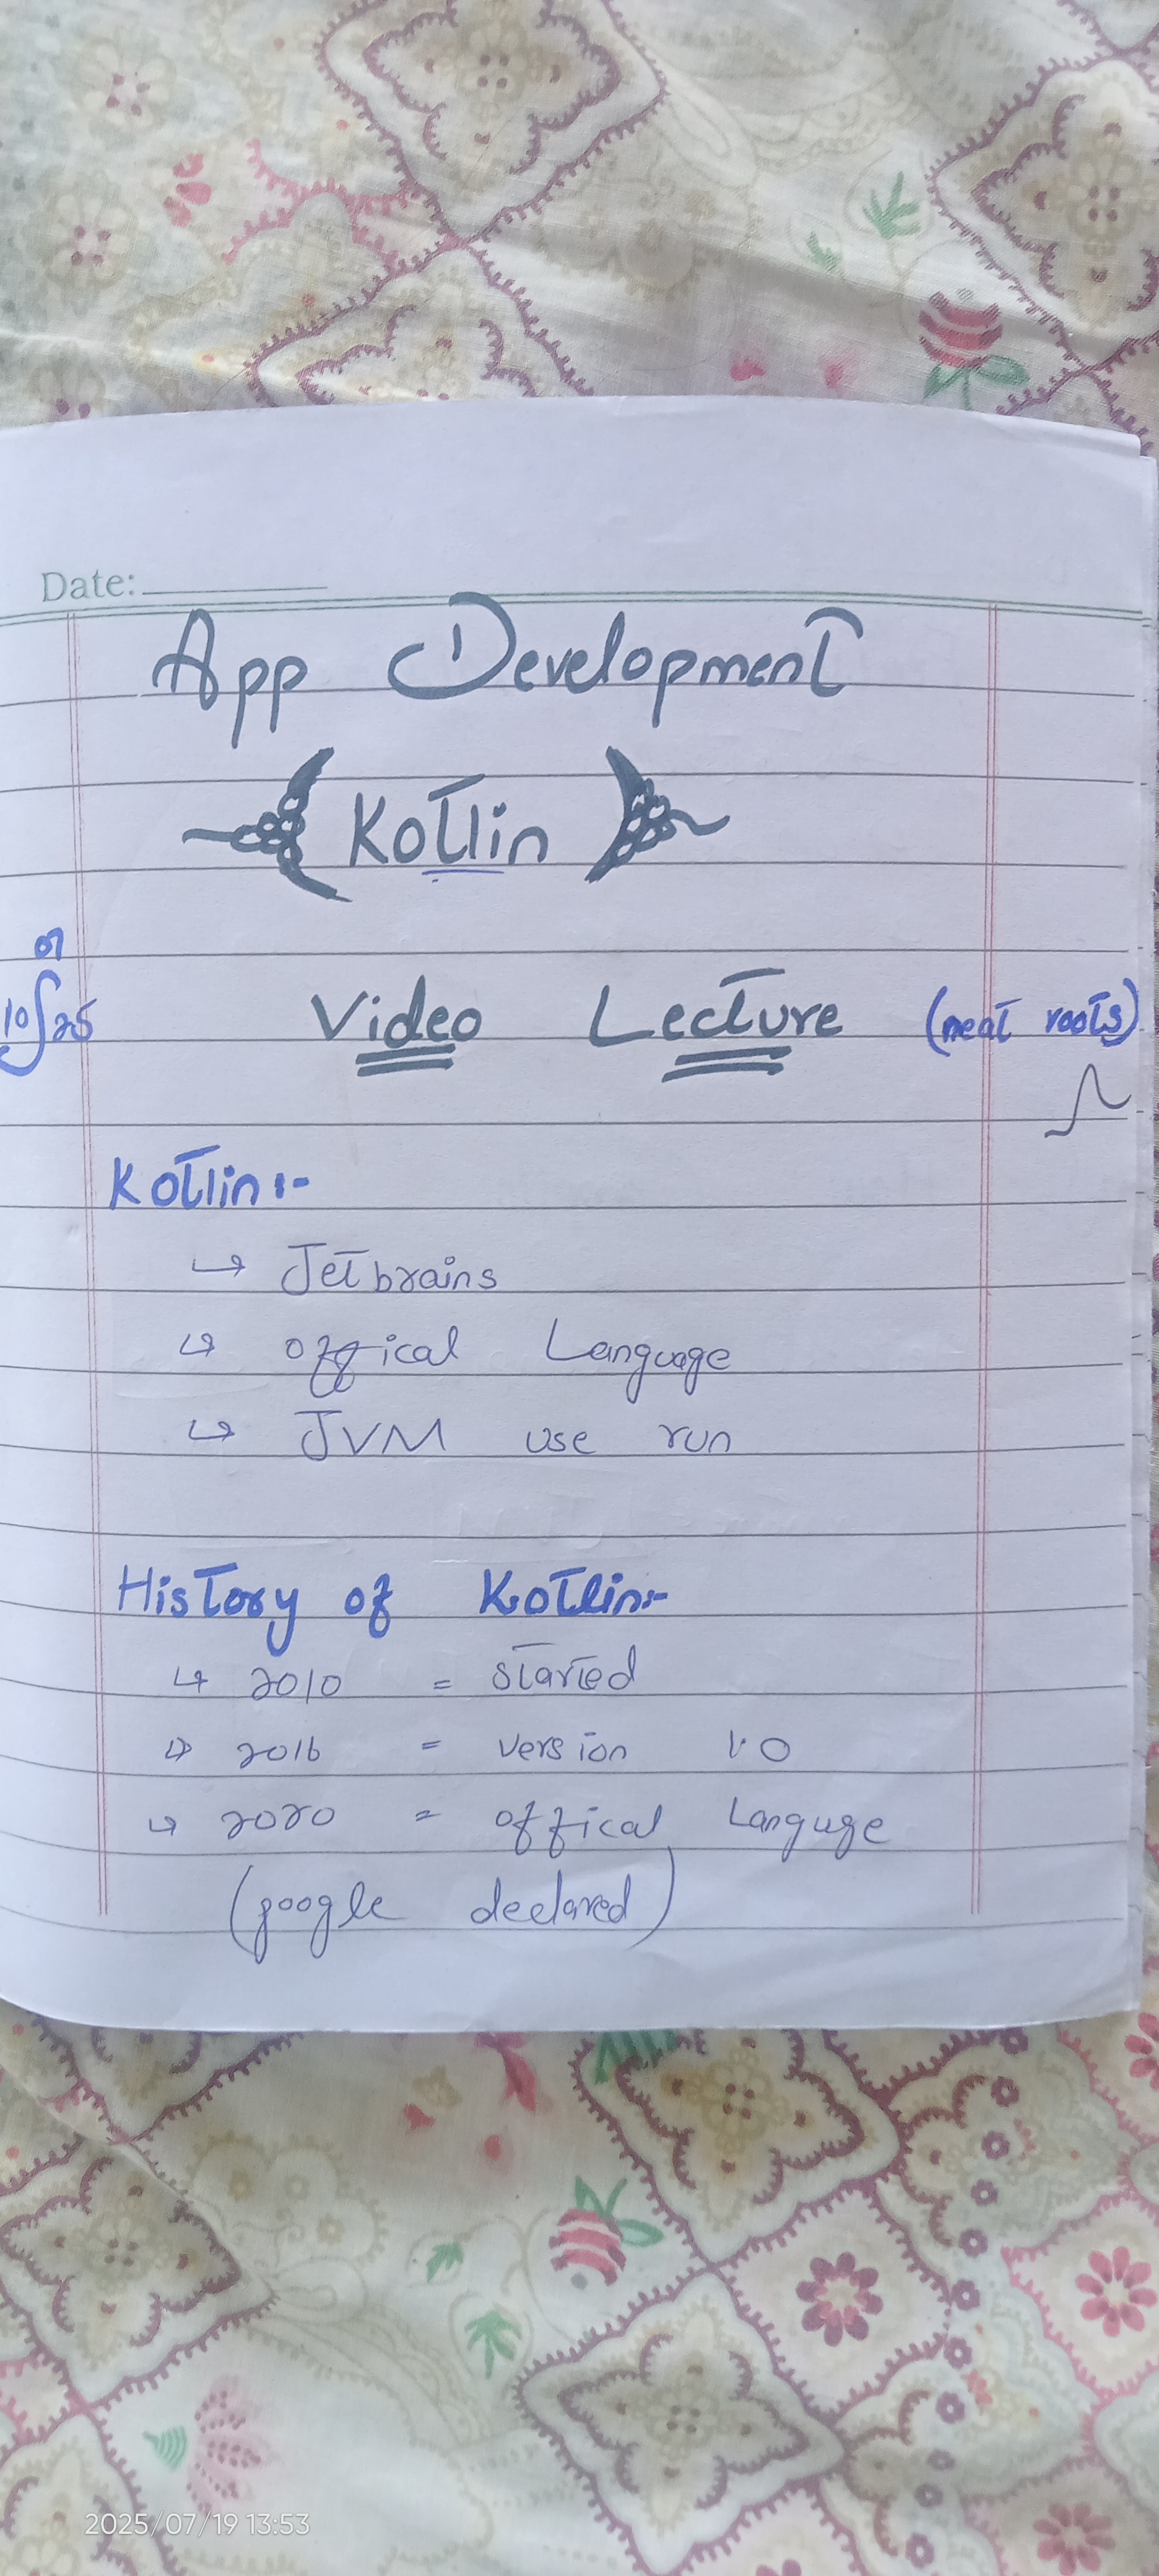 Date:
App Development
Kotlin
07
10 25
Video Lecture (neat roots)
Kotlin :-
↳ Jetbrains
↳ offical Language
↳ JVM use run
History of Kotlin:-
↳ 2010 = started
↳ 2016 = version 1.0
↳ 2020 = offical Languge
(google declared)
2025/07/19 13:53